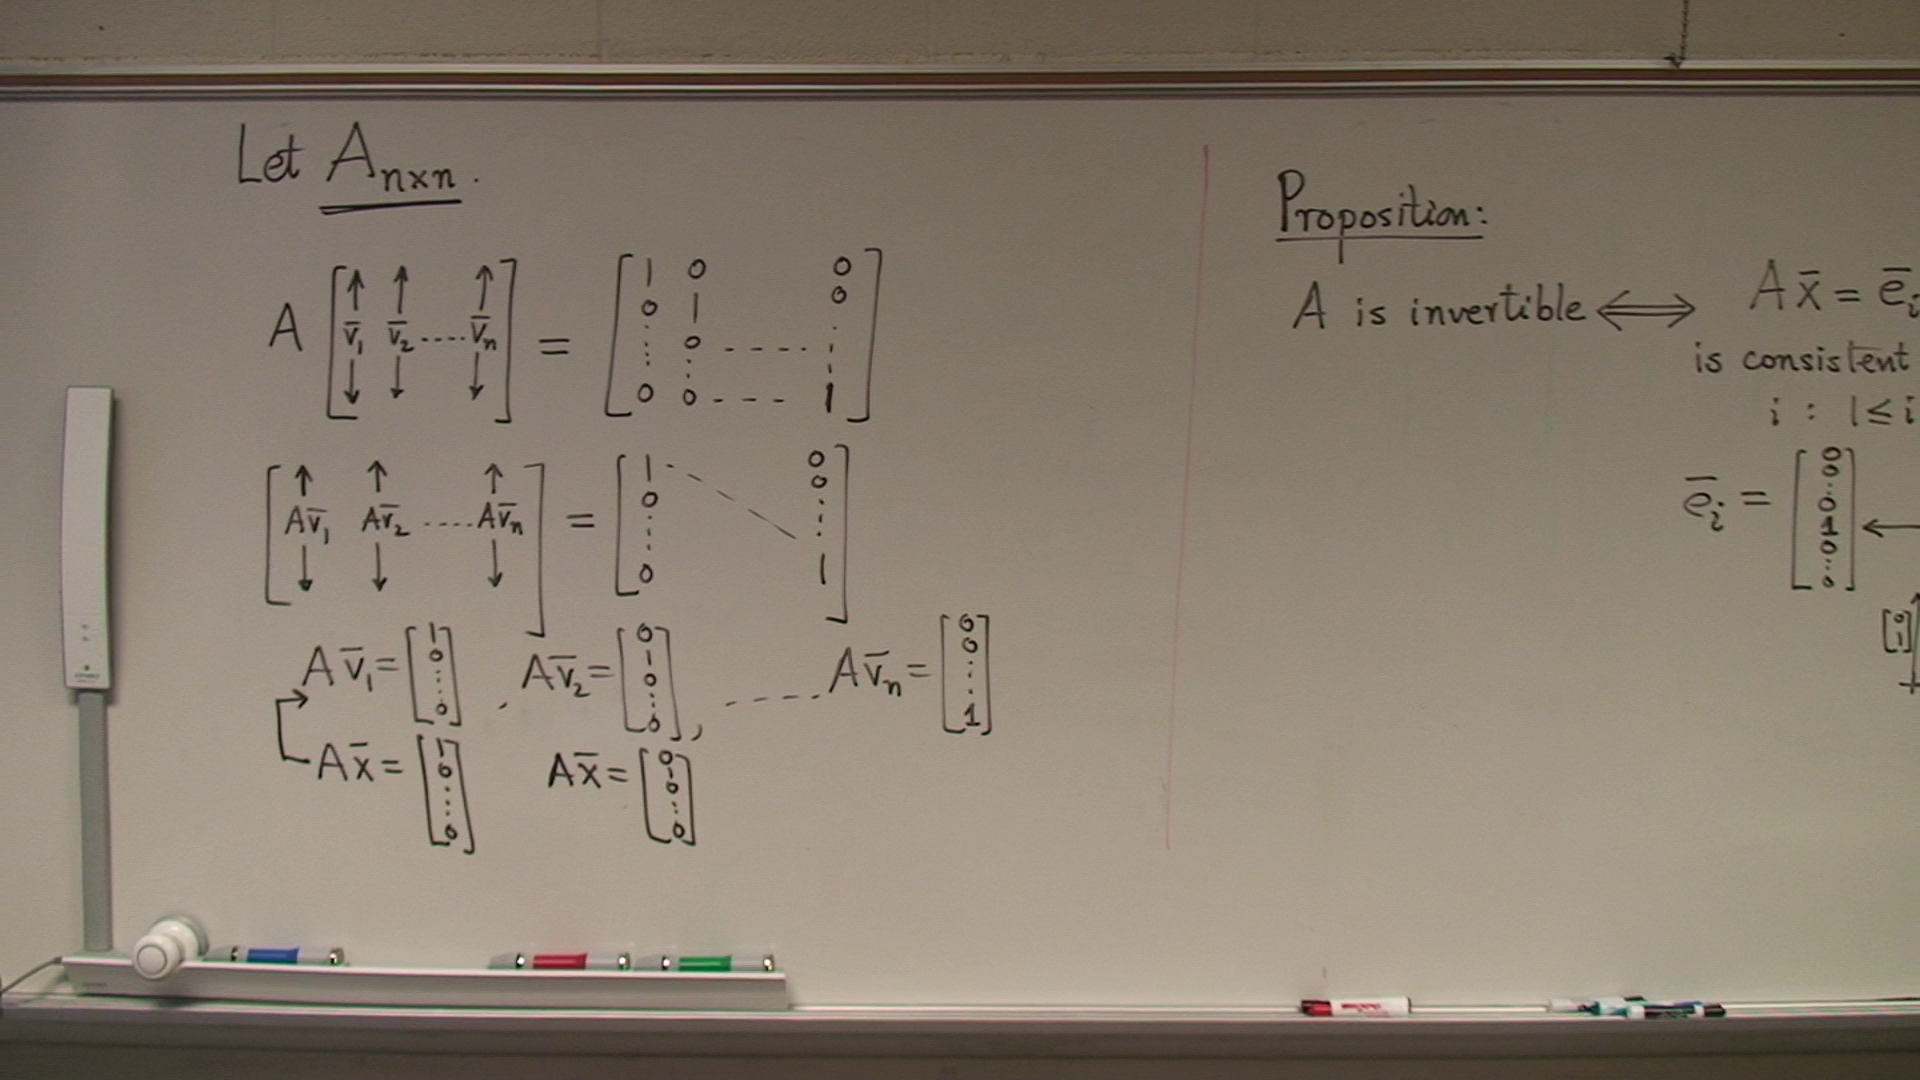 Let A n×n .
A [ v̄1 v̄2 ..... v̄n ] = [ 1 0 0
0 1 0
: 0 - - - - :
0 0 - - - 1 ]
[ Av̄1 Av̄2 ..... Av̄n ] = [ 1 0
0 0
: :
0 1 ]
Av̄1 = [ 1 0 : 0 ] , Av̄2 = [ 0 1 0 : 0 ] , - - - - Av̄n = [ 0 0 : 1 ]
Ax̄ = [ 1 0 : 0 ] Ax̄ = [ 0 1 0 : 0 ]
Proposition:
A is invertible ⟺ Ax̄ = ēi
is consistent
i : 1 ≤ i
ēi = [ 0 0 : 0 1 0 : 0 ] ←
[ 0 1 ]